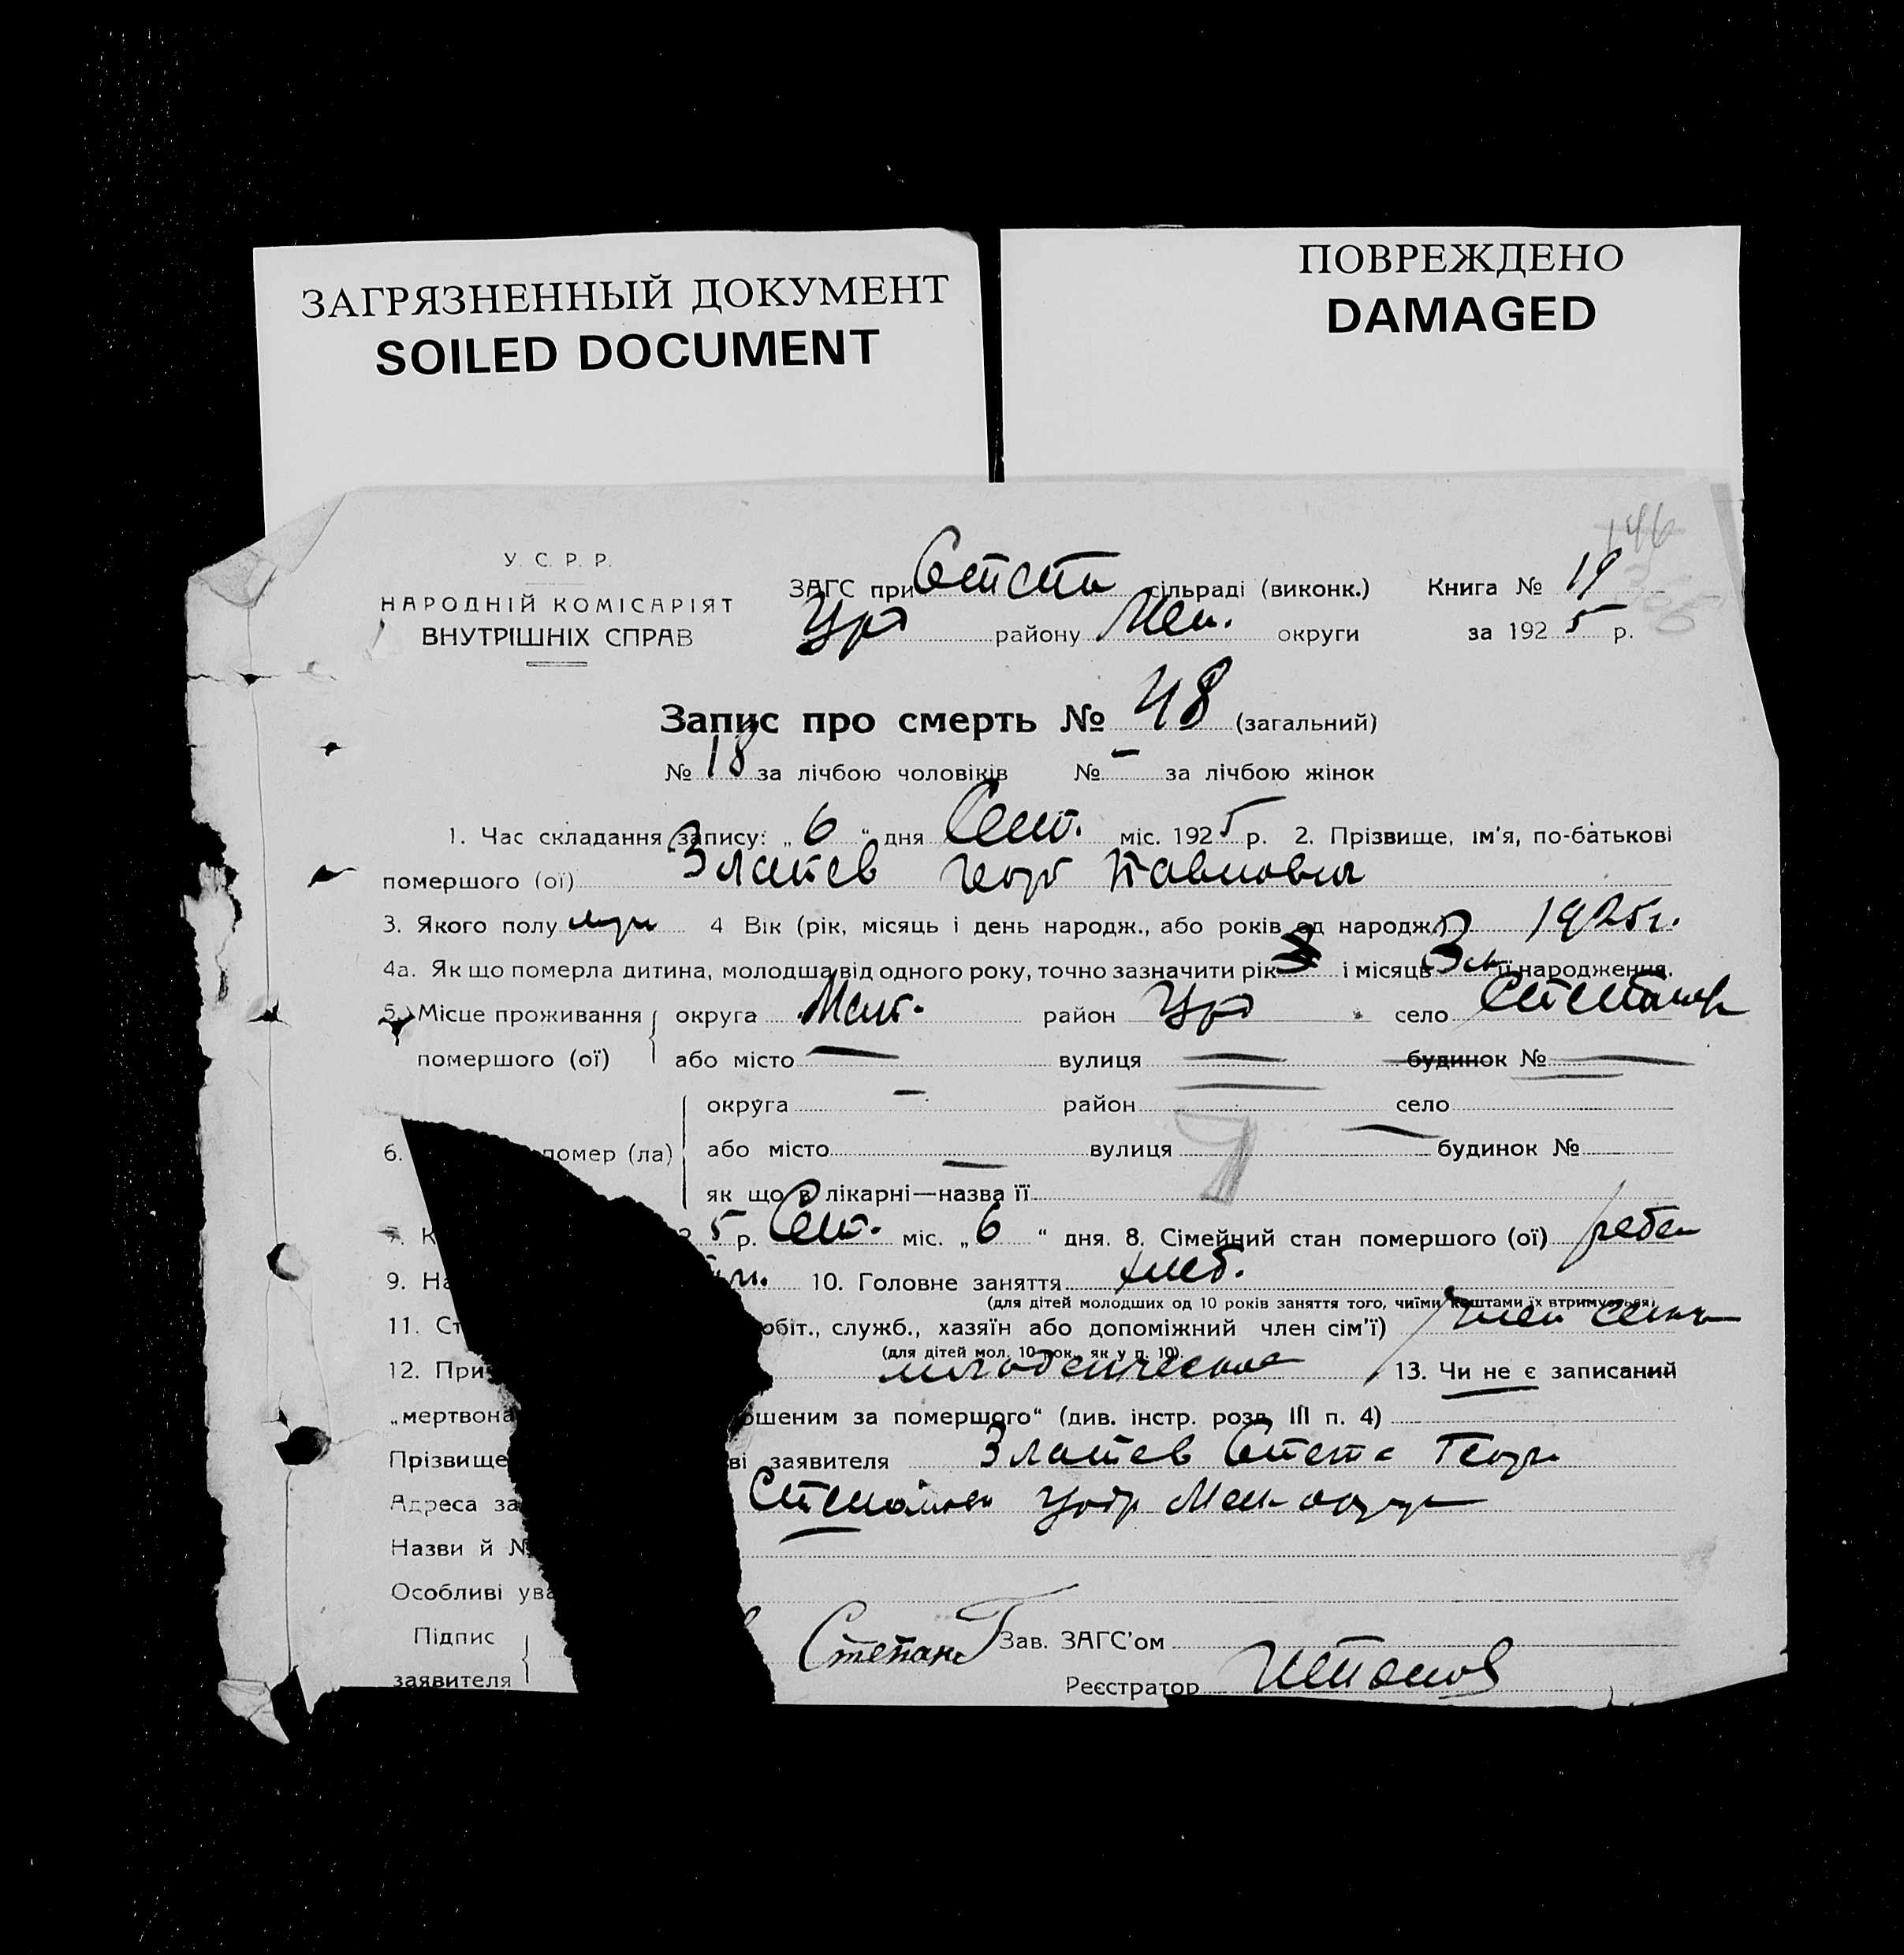 ЗАГРЯЗНЕННЫЙ ДОКУМЕНТ
SOILED DOCUMENT
ПОВРЕЖДЕНО
DAMAGED
146
У. С. Р. Р.
НАРОДНІЙ КОМІСАРІЯТ
ВНУТРІШНІХ СПРАВ
ЗАГС при сільраді (виконк.) Книга № 19
району Мел. округи за 1925 р.
Запис про смерть № 48 (загальний)
№ 18 за лічбою чоловіків № – за лічбою жінок
1. Час складання запису: „ 6 “ дня Сент. міс. 1925 р. 2. Прізвище, ім'я, по-батькові
помершого (ої) Златев Георг Павлович
3. Якого полу муж 4 Вік (рік, місяць і день народж., або років од народж.) 1925 г.
4а. Як що померла дитина, молодша від одного року, точно зазначити рік і місяць 3 м її народження.
5. Місце проживання округа Мелт. район село
помершого (ої) або місто — вулиця — будинок № —
округа – район село
6. помер (ла) або місто — вулиця — будинок №
як що в лікарні—назва її
7. К 5 р. Сент. міс. „ 6 “ дня. 8. Сімейний стан помершого (ої) ребен
9. На 10. Головне заняття хлеб.
(для дітей молодших од 10 років заняття того, чиїми коштами їх втримується)
11. Ст обіт., служб., хазяїн або допоміжний член сім'ї) член семьи
(для дітей мол. 10 рок. як у п. 10).
12. При младенческая 13. Чи не є записаний
„мертвона ошеним за помершого“ (див. інстр. розд. III п. 4)
Прізвище ві заявителя Златев Степан Георг
Адреса за Мел округ
Назви й №
Особливі ува
Підпис Степан Г Зав. ЗАГС'ом
заявителя Реєстратор